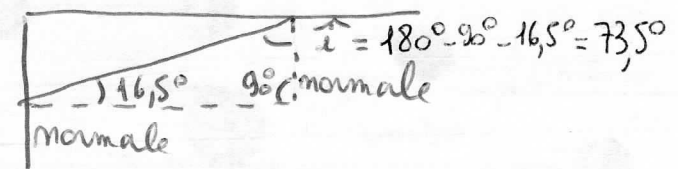 î = 180° - 90° - 16,5° = 73,5°
16,5° 90° normale
normale